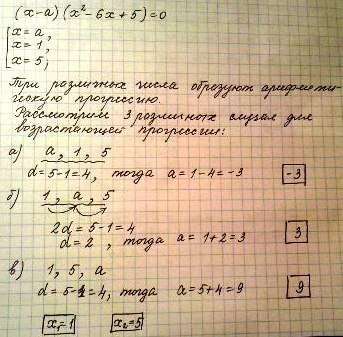 (x-a)(x²-6x+5)=0
[x=a,
x=1,
x=5;
Три различных числа образуют арифмети-
ческую прогрессию.
Рассмотрим 3 различных случая для
возрастающей прогрессии:
а) a, 1, 5
d=5-1=4, тогда a=1-4=-3 -3
б) 1, a, 5
2d=5-1=4
d=2, тогда a=1+2=3 3
в) 1, 5, a
d=5-1=4, тогда a=5+4=9 9
x₁=1 x₂=5